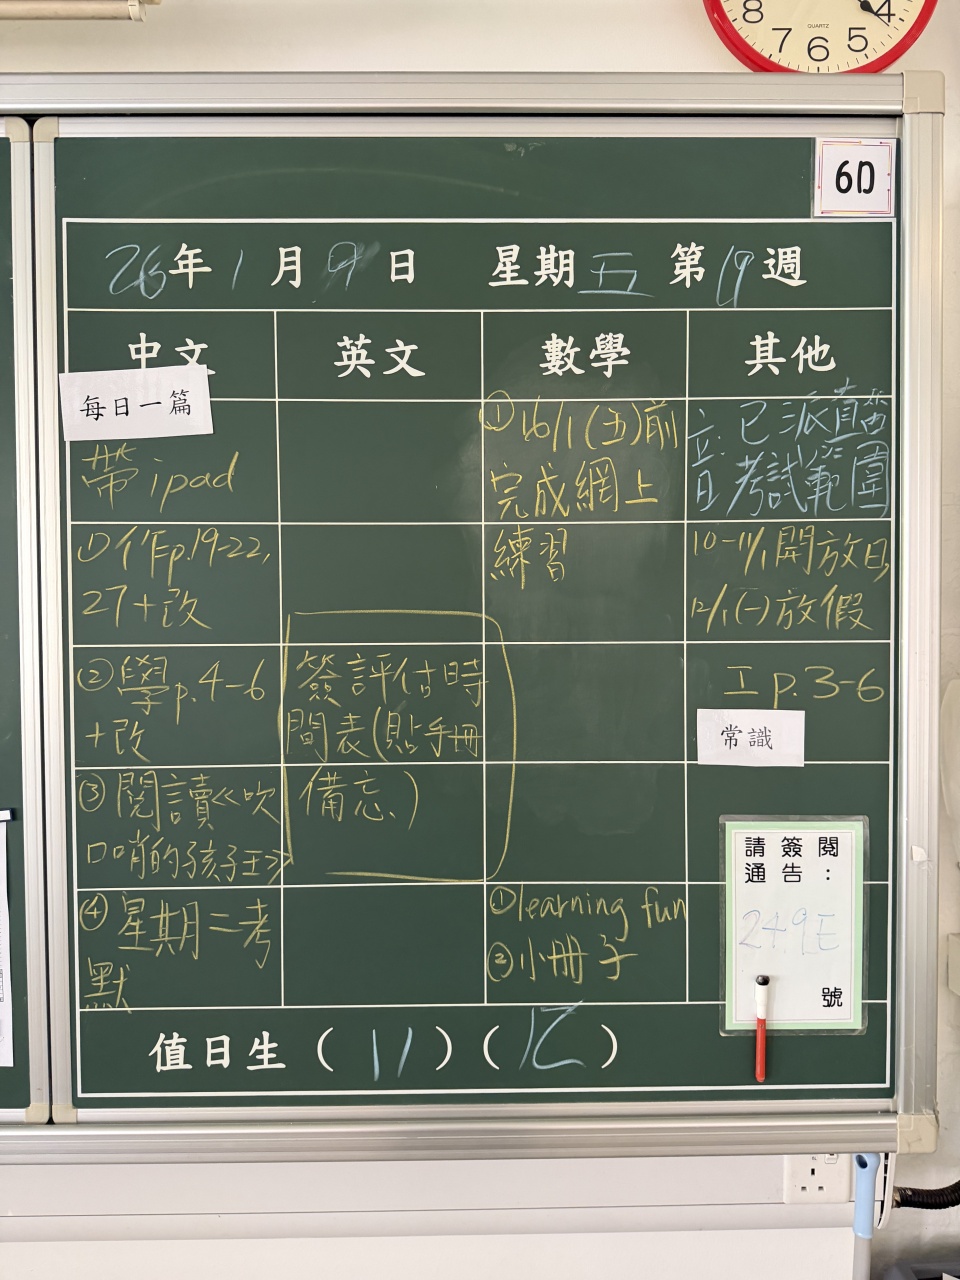 8 7 6 5 4
QUARTZ
6D
26年1月9日 星期五 第19週
中文 英文 數學 其他
每日一篇
帶ipad
①作p.19-22,
27+改
②學p.4-6
+改
③閱讀《吹
口哨的孩子王》
④星期二考
默
簽評估時
間表(貼手冊
備忘)
①16/1(五)前
完成網上
練習
①learning fun
②小冊子
音:已派直笛
考試範圍
10-11/1開放日,
12/1(一)放假
工p.3-6
常識
請簽閱
通告:
249E
號
值日生(11)(12)